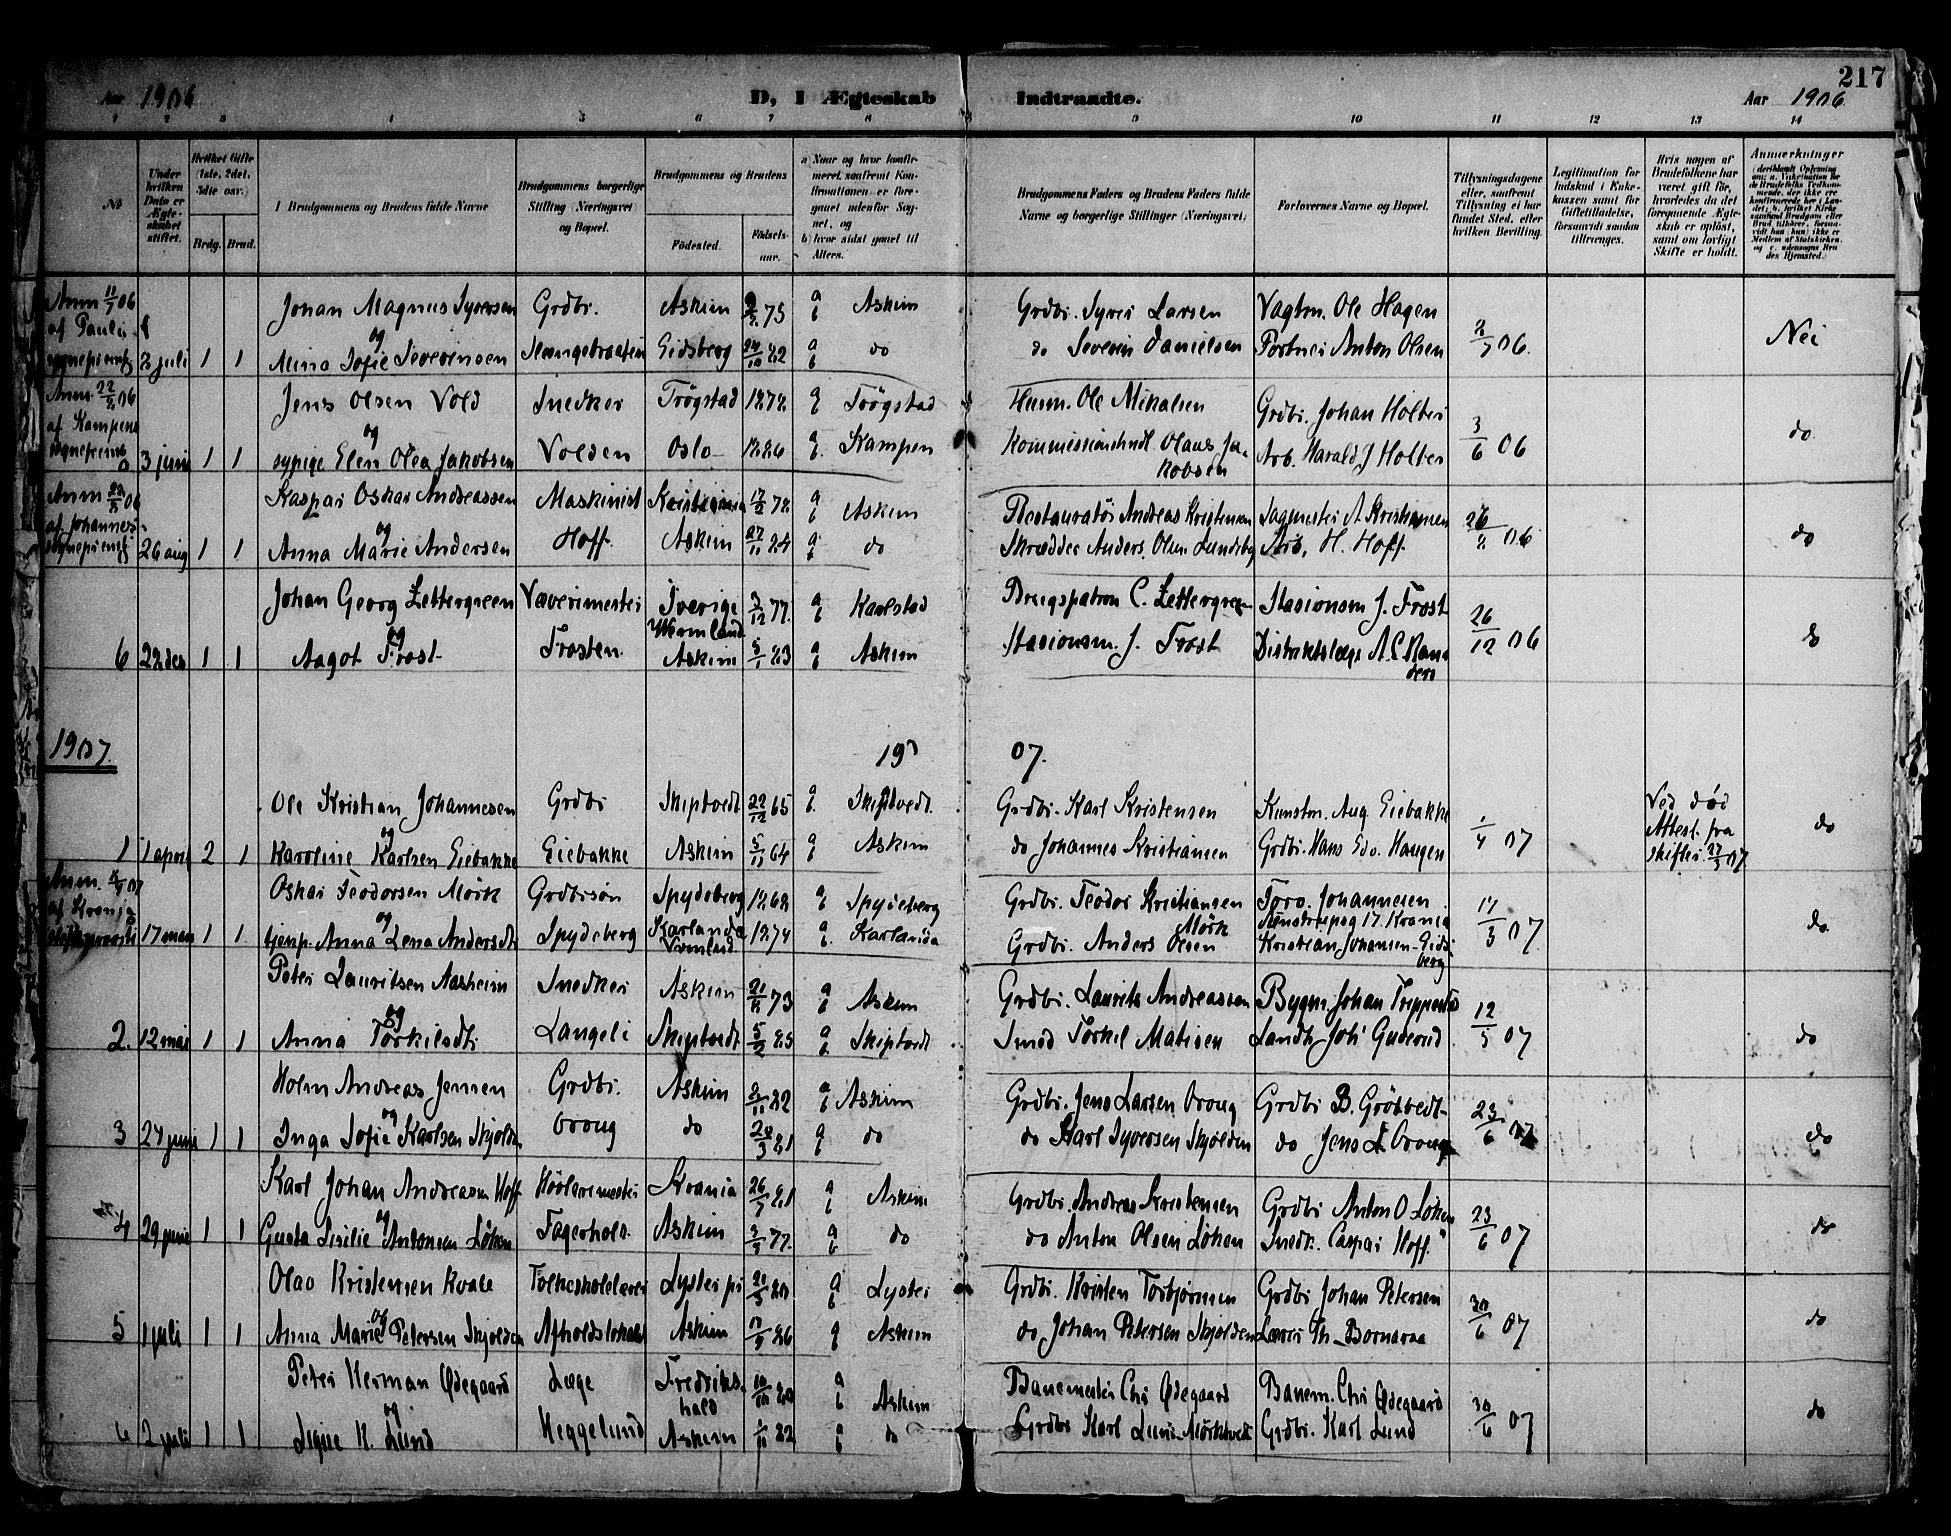 217
Aar 1906 D, I Ægteskab Indtraadte. Aar 1906
1 2 3 4 5 6 7 8 9 10 11 12 13 14
No
Under hvilken Dato er Ægteskabet stiftet.
Hvilket Gifte (1ste, 2det, 3die osv.)
Brdg. Brud.
I Brudgommens og Brudens fulde Navne
Brudgommens borgerlige Stilling (Næringsvei) og Bopæl.
Brudgommens og Brudens
Födested. Födselsaar.
a) Naar og hvor konfirmeret, samt om Konfirmationen er foregaaet udenfor Sognet, og
b) hvor sidst gaaet til Alters.
Brudgommens Faders og Brudens Faders fulde Navne og borgerlige Stillinger (Næringsvei)
Forlovernes Navne og Bopæl.
Tillysningsdagene eller, saafremt Tillysning ei har fundet Sted, efter hvilken Bevilling.
Legitimation for Indskud i Enkekassen samt for Giftetilladelse, forsaavidt saadan tiltrænges.
Hvis nogen af Brudefolkene har været gift för, hvorledes da det foregaaende Ægteskab er oplöst, samt om lovligt Skifte er holdt.
Anmærkninger
Anm 11/7 06 af Paulis sogneprest
Johan Magnus Syversen Grdbr. Askim 75 a b Askim Grdbr. Syver Larsen Vagtm. Ole Hagen
og
2 juli 1 1 Alina Sofie Severinsen Slængebraaten Eidsberg 82 a b do do Severin Danielsen Portner Anton Olsen 06. Nei
Anm. 22/8 06 af Kampens sogneprest
Jens Olsen Vold Snedker Trögstad 1878 a b Trögstad Husm. Ole Mikalsen Grdbr. Johan Holter
og
3 juni 1 1 sypige Elen Olea Jakobsen Volden Oslo 1886 a b. Kampen Kommissionshndl Olaus Jakobsen Arb. Harald J Holter 3/6 06 do
Anm 06 af Johannes sogneprest
Kaspar Oskar Andreassen Maskinist Kristiania 17 78 a b Askim Restauratör Andreas Kristensen Sagmester A. Kristiansen
og
26 aug 1 1 Anna Marie Andersen Hoff. Askim 27/11 84 a b do Skrædder Anders Olsen Lundeby Arb. H. Hoff. 26/8 06 do
Johan Georg Zettergreen Væverimester Sverige Wermland 3/12 77. a b Karlstad Brugspatron C. Zettergreen Stasionsm J. Frost
og
6 22 des 1 1 Aagot Frost Frosten. Askim 5/1 83 a b Askim Stasionsm. J. Frost Distriktslæge A. C. Randers 26/12 06 do
1907. 1907.
Ole Kristian Johannesen Grdbr Skiptvedt 22/12 65 a b. Skiptvedt. Grdbr. Karl Kristensen Kunstm. Aug Eiebakke
og
1 1 april 2 1 Karoline Karlsen Eiebakke Eiebakke Askim 5/11 64 a b Askim do Johannes Kristiansen Grdbr. Hans Edv. Haugen 1/4 07 Ved död Attest. fra skifter. 27/3 07 do
Anm. 07 af Krania
Oskar Teodorsen Mörk Grdbrsön Spydeberg 1868 a b Spydeberg Grdbr. Teodor Kristiansen Mörk Torv. Johannesen
og
17 mars 1 1 tjenp. Anna Lena Andersdt Spydeberg Karlanda Vermland 1874 a b. Karlanda Grdbr. Anders Olsen Kristian Johansen Eidsberg 17/3 07 do.
Peter Lauritsen Aasheim Snedker Askim 21 73 a b Askim Grdbr. Laurits Andreassen Bygm. Johan Trippestad
og
2. 12 mai 1 1 Anna Torkilsdtr Langeli Skiptvedt 5/2 85 a b. Skiptvedt Smed Torkil Matisen Landh. Joh Guderud 12/5 07 do
Holm Andreas Jensen Grdbr. Askim 82 a b Askim Grdbr. Jens Larsen Oroug Grdbr B. Grösvedt
og
3 24 juni 1 1 Inga Sofie Karlsen Skjolden Oroug do 81 a b do do Karl Syversen Skjolden do Jens L Oroug 23/6 07 do
Karl Johan Andreasen Hoff Høvlerimester Krania 26/7 81 a b Askim Grdbr. Andreas Kristensen Grdbr Anton O Löken
og
4 29 juni 1 1 Gusta Sisilie Antonsen Löken Fagerholt Askim 77. a b do do Anton Olsen Löken Snedk. Caspar Hoff. 23/6 07 do
Olav Kristensen Kvale Folkeskolelærer Lyster pr 21/5 80 a b Lyster Grdbr. Kristen Torbjörnsen Grdbr Johan Petersen
og
5 1 juli 1 1 Anna Marie Petersen Skjolden Afholdslokalet Askim 86 a b Askim do Johan Petersen Skjolden Lærer Th. Bornaraa 30/6 07 do
Peter Herman Ødegaard Læge Fredrikshald 80 a b Askim Banemester Chr Ødegaard Banem. Chr Ødegaard
og
6 2 juli 1 1 Signe K. Lund Heggelund Askim 82 a b do Grdbr Karl Lund Mörktvedt Grdbr. Karl Lund 30/6 07 do